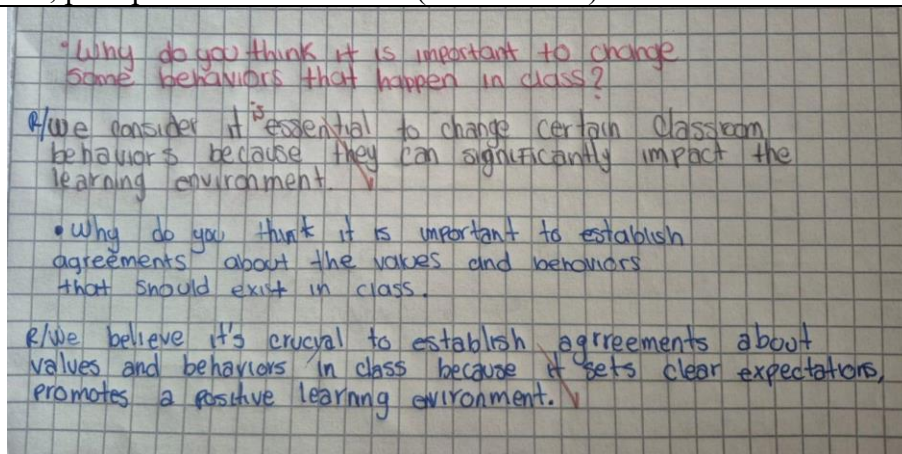 • Why do you think it is important to change
some behaviors that happen in class?
R/We consider it is essential to change certain classroom
behaviors because they can significantly impact the
learning environment.
• Why do you think it is important to establish
agreements about the values and behaviors
that should exist in class.
R/We believe it's crucyal to establish agrreements about
values and behaviors in class because it sets clear expectations,
promotes a positive learnng environment.